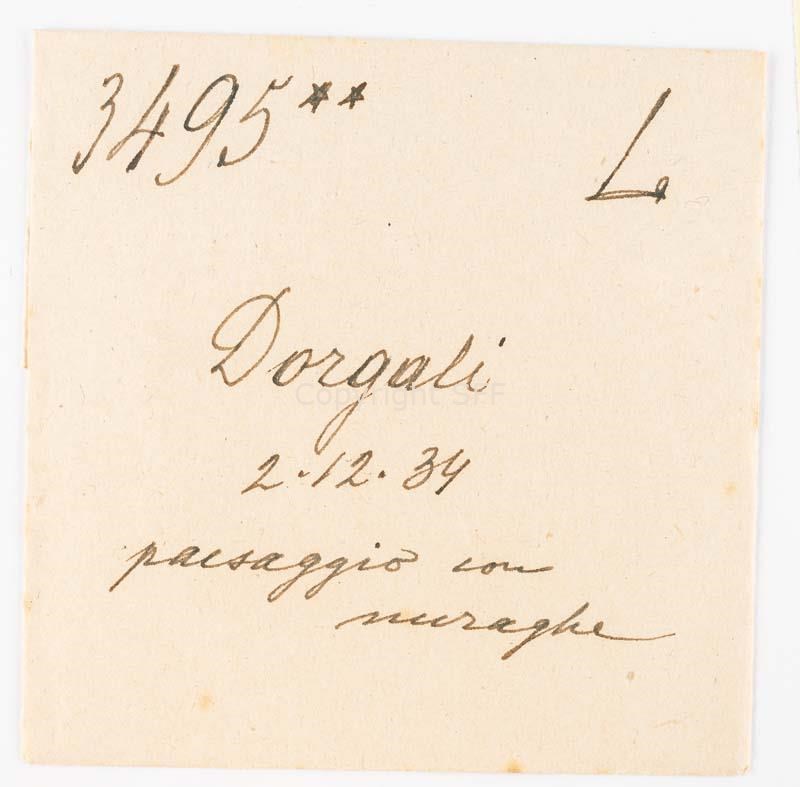 3495** L
Dorgali
Copyright SFF
2.12.34
paesaggio con
nuraghe